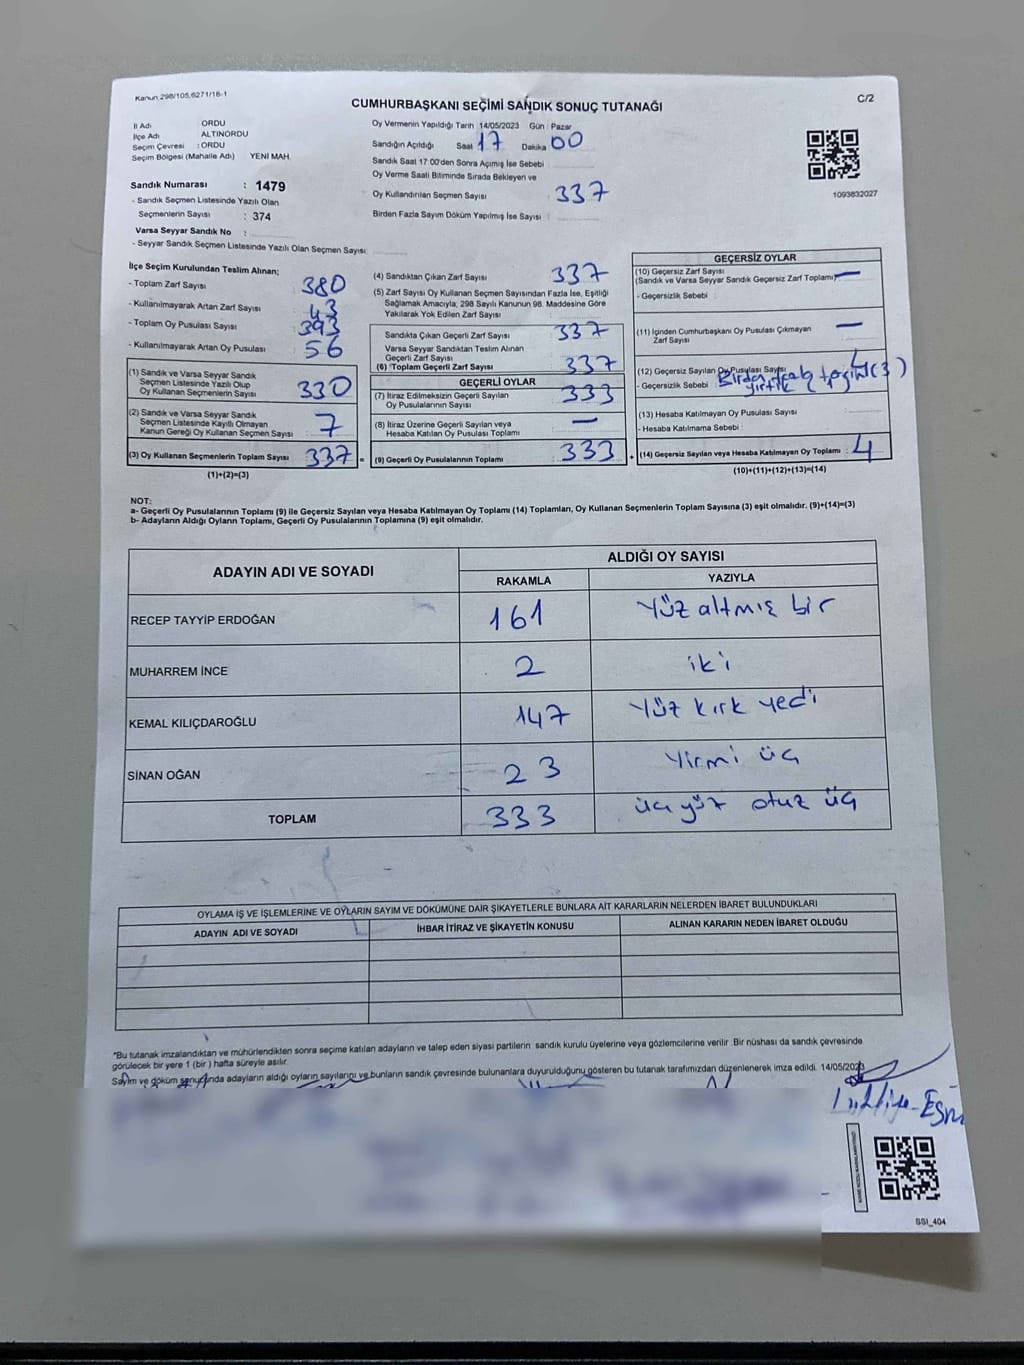 Kanun 298/105,6271/16-1
C/2
CUMHURBAŞKANI SEÇİMİ SANDIK SONUÇ TUTANAĞI
İl Adı ORDU
İlçe Adı ALTINORDU
Seçim Çevresi : ORDU
Seçim Bölgesi (Mahalle Adı) YENİ MAH.
Sandık Numarası : 1479
- Sandık Seçmen Listesinde Yazılı Olan
Seçmenlerin Sayısı : 374
Varsa Seyyar Sandık No :
- Seyyar Sandık Seçmen Listesinde Yazılı Olan Seçmen Sayısı
Oy Vermenin Yapıldığı Tarih 14/05/2023 Gün : Pazar
Sandığın Açıldığı Saat 17 Dakika 00
Sandık Saat 17:00'den Sonra Açımış İse Sebebi
Oy Verme Saati Bitiminde Sırada Bekleyen ve
Oy Kullandırılan Seçmen Sayısı 337
Birden Fazla Sayım Döküm Yapılmış İse Sayısı :
1093832027
İlçe Seçim Kurulundan Teslim Alınan;
- Toplam Zarf Sayısı 380
- Kullanılmayarak Artan Zarf Sayısı 43
- Toplam Oy Pusulası Sayısı 393
- Kullanılmayarak Artan Oy Pusulası 56
(1) Sandık ve Varsa Seyyar Sandık
Seçmen Listesinde Yazılı Olup
Oy Kullanan Seçmenlerin Sayısı 330
(2) Sandık ve Varsa Seyyar Sandık
Seçmen Listesinde Kayıtlı Olmayan
Kanun Gereği Oy Kullanan Seçmen Sayısı 7
(3) Oy Kullanan Seçmenlerin Toplam Sayısı 337 =
(1)+(2)=(3)
(4) Sandıktan Çıkan Zarf Sayısı 337
(5) Zarf Sayısı Oy Kullanan Seçmen Sayısından Fazla İse, Eşitliği
Sağlamak Amacıyla; 298 Sayılı Kanunun 98. Maddesine Göre
Yakılarak Yok Edilen Zarf Sayısı
Sandıkta Çıkan Geçerli Zarf Sayısı 337
Varsa Seyyar Sandıktan Teslim Alınan
Geçerli Zarf Sayısı
(6) Toplam Geçerli Zarf Sayısı 337
GEÇERLİ OYLAR
(7) İtiraz Edilmeksizin Geçerli Sayılan
Oy Pusulalarının Sayısı 333
(8) İtiraz Üzerine Geçerli Sayılan veya
Hesaba Katılan Oy Pusulası Toplamı —
(9) Geçerli Oy Pusulalarının Toplamı 333 +
GEÇERSİZ OYLAR
(10) Geçersiz Zarf Sayısı
(Sandık ve Varsa Seyyar Sandık Geçersiz Zarf Toplamı) —
- Geçersizlik Sebebi :
(11) İçinden Cumhurbaşkanı Oy Pusulası Çıkmayan
Zarf Sayısı —
(12) Geçersiz Sayılan Oy Pusulası Sayısı 4
- Geçersizlik Sebebi (3)
(13) Hesaba Katılmayan Oy Pusulası Sayısı
- Hesaba Katılmama Sebebi :
(14) Geçersiz Sayılan veya Hesaba Katılmayan Oy Toplamı : 4
(10)+(11)+(12)+(13)=(14)
NOT:
a- Geçerli Oy Pusulalarının Toplamı (9) ile Geçersiz Sayılan veya Hesaba Katılmayan Oy Toplamı (14) Toplamları, Oy Kullanan Seçmenlerin Toplam Sayısına (3) eşit olmalıdır. (9)+(14)=(3)
b- Adayların Aldığı Oyların Toplamı, Geçerli Oy Pusulalarının Toplamına (9) eşit olmalıdır.
ADAYIN ADI VE SOYADI ALDIĞI OY SAYISI
RAKAMLA YAZIYLA
RECEP TAYYİP ERDOĞAN 161 Yüz altmış bir
MUHARREM İNCE 2 iki
KEMAL KILIÇDAROĞLU 147 Yüz kırk yedi
SİNAN OĞAN 23 Yirmi üç
TOPLAM 333 üç yüz otuz üç
OYLAMA İŞ VE İŞLEMLERİNE VE OYLARIN SAYIM VE DÖKÜMÜNE DAİR ŞİKAYETLERLE BUNLARA AİT KARARLARIN NELERDEN İBARET BULUNDUKLARI
ADAYIN ADI VE SOYADI İHBAR İTİRAZ VE ŞİKAYETİN KONUSU ALINAN KARARIN NEDEN İBARET OLDUĞU
*Bu tutanak imzalandıktan ve mühürlendikten sonra seçime katılan adayların ve talep eden siyasi partilerin sandık kurulu üyelerine veya gözlemcilerine verilir. Bir nüshası da sandık çevresinde
görülecek bir yere 1 (bir) hafta süreyle asılır.
Sayım ve döküm sonucunda adayların aldığı oyların sayılarını ve bunların sandık çevresinde bulunanlara duyurulduğunu gösteren bu tutanak tarafımızdan düzenlenerek imza edildi. 14/05/2023
SSI_404